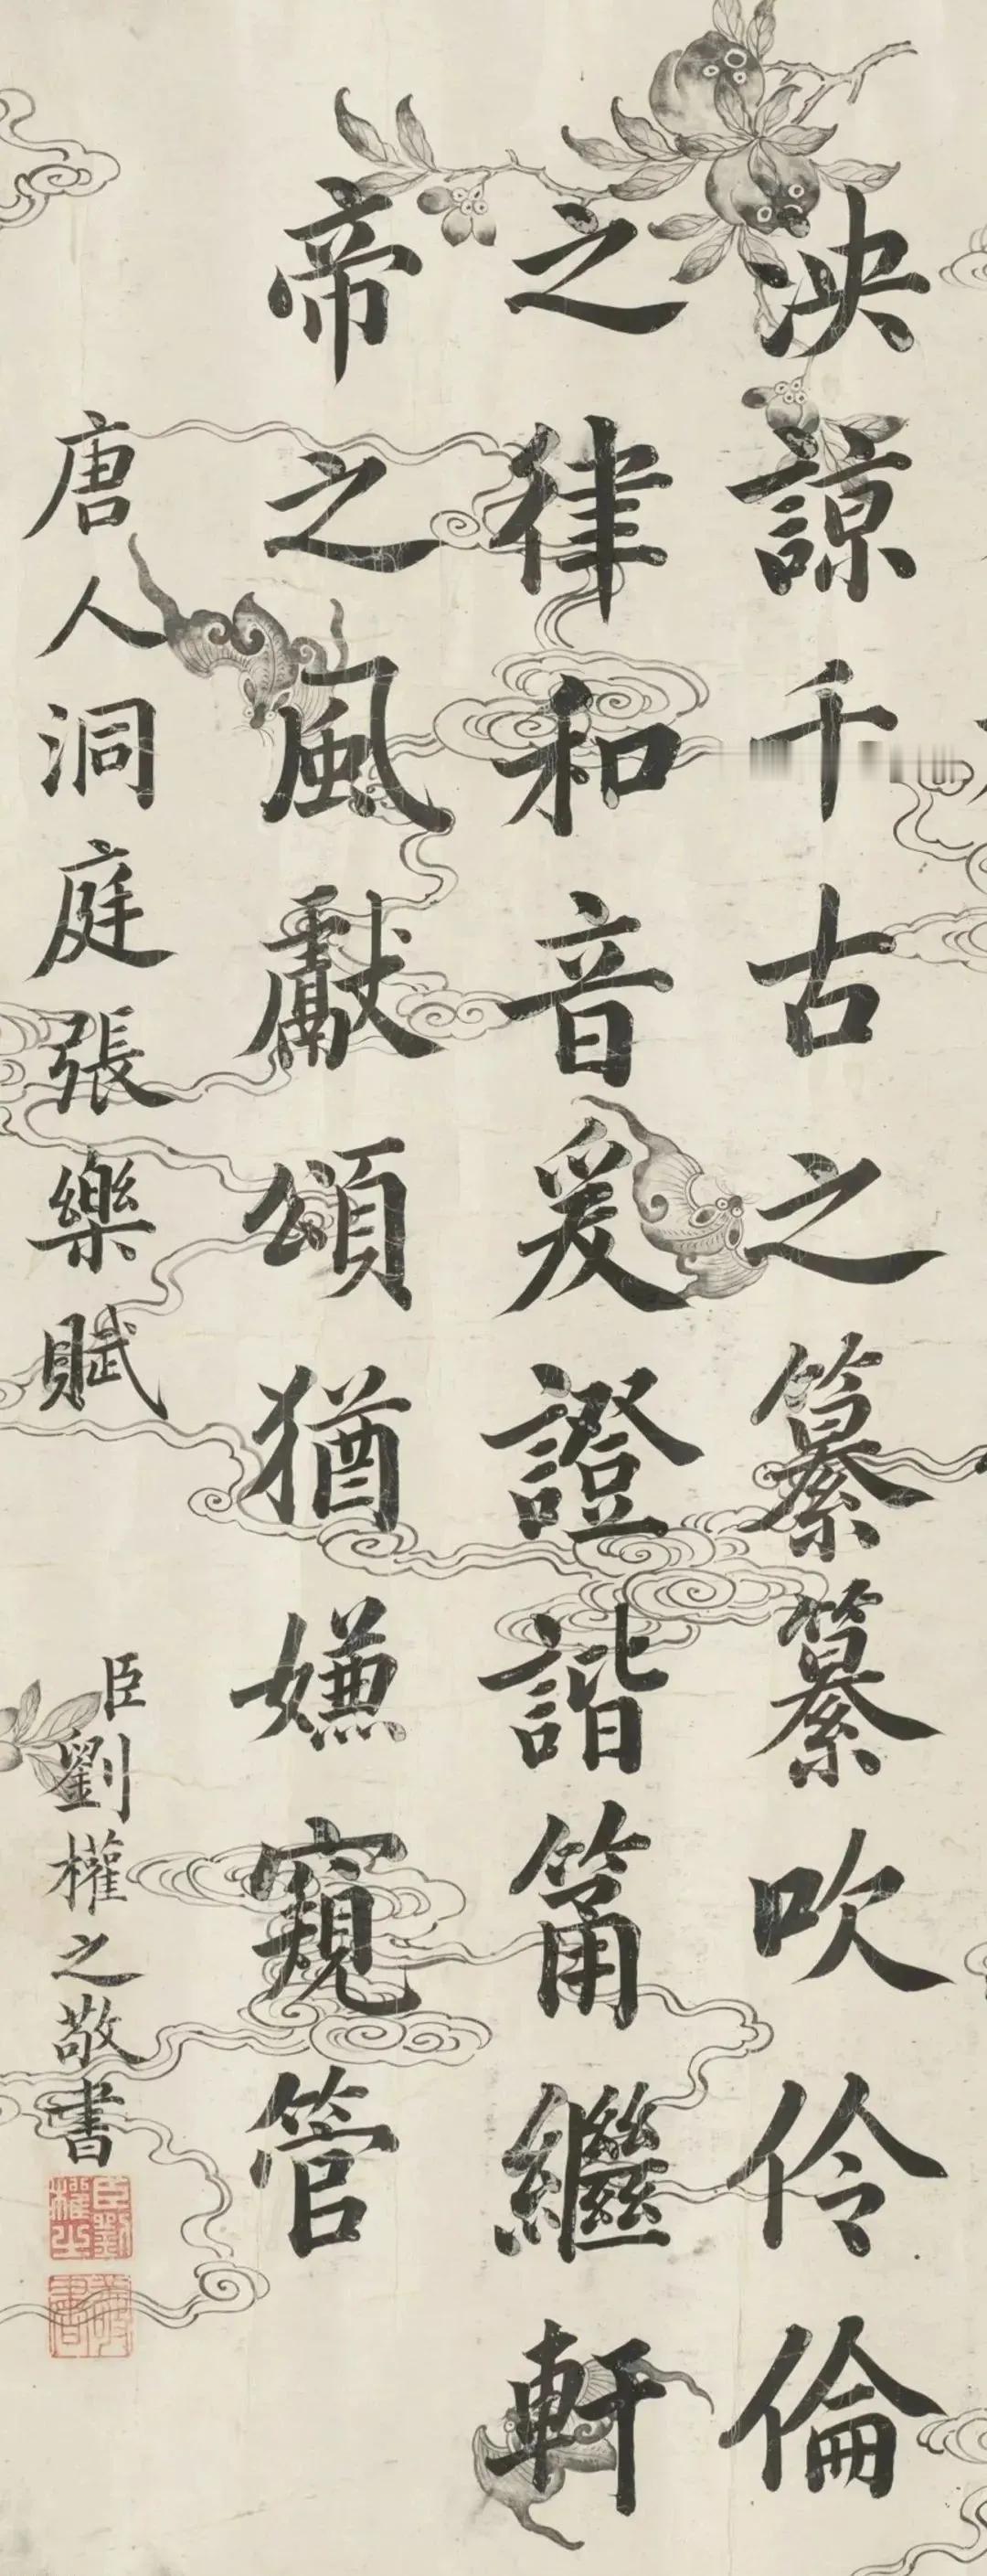 泱諒千古之纂纂吹伶倫
之律和音爰證諧簫繼軒
帝之風獻頌猶嫌窺管
唐人洞庭張樂賦
臣劉權之敬書
臣劉權之
敬書